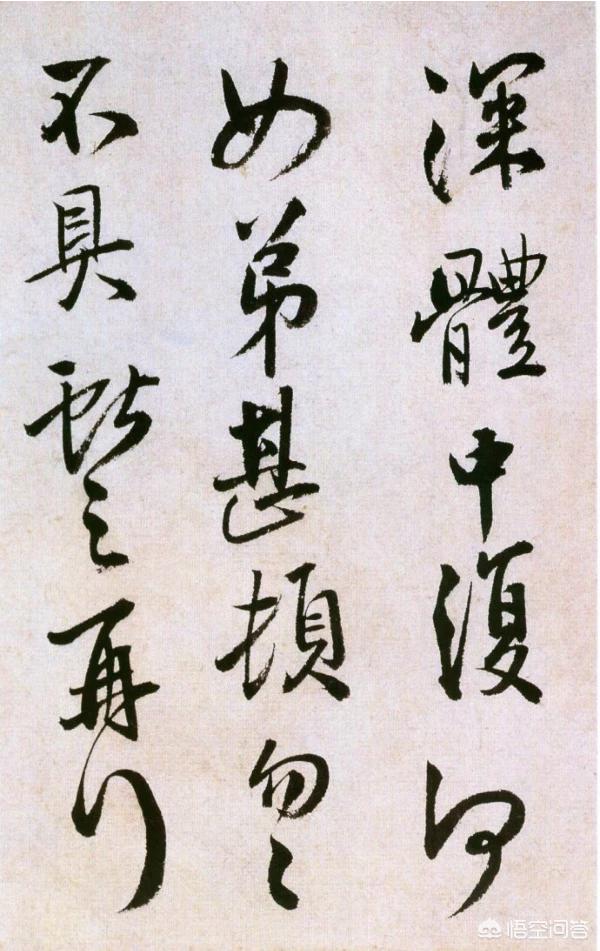 深體中復何
如弟甚頓匆〻
不具獻之再拜
悟空问答